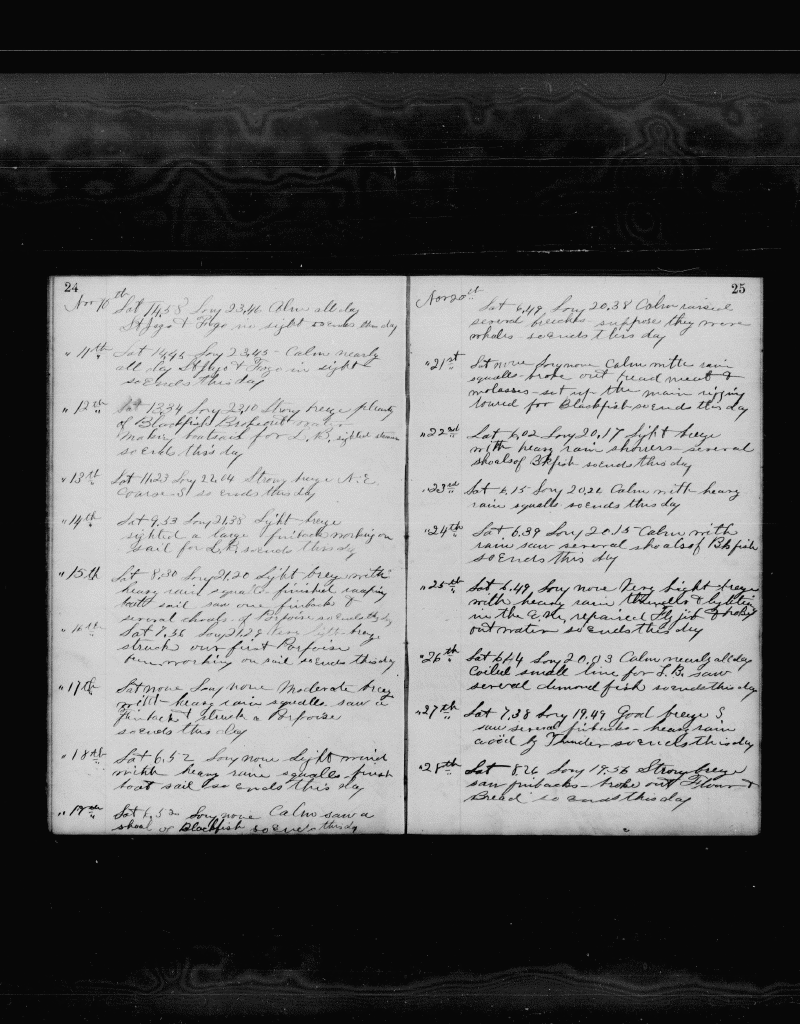 24
Nov 10th Lat 14.58 Long 23.46 Calm all day
St Jago & Fogo in sight so ends this day
" 11th Lat 14.45 Long 23.45 Calm nearly
all day St Jago & Fogo in sight
so Ends this day
" 12th Lat 13.34 Long 23.10 Strong breze plenty
of Blackfish Broke out water
Making boatsail for L.B. sighted steamer
so End this day
" 13th Lat 11.23 Long 22.04 Strong breze N.E.
Coarse S so ends this day
" 14th Lat 9.53 Long 21.38 Light breze
sighted a large finback working on
sail for L.B. so ends this dy
" 15th Lat 8.30 Long 21.20 Light breze with
heavy rain squalls finished
boat sail saw one finback &
several shoals of Porpoise so ends this dy
" 16th Lat 7.36 Long 21.29 Very light brez
struck our first Porpoise
been working on sail so ends this day
" 17th Lat none Long none Moderate brez
with heavy rain squalls saw a
finback & struck a Porpoise
so ends this day
" 18th Lat 6.52 Long none Light wind
with heavy rain squalls finish
boat sail so ends this day
" 19th Lat 6.52 Long none Calm saw a
shoal of Blackfish so ends this dy
25
Nov 20th Lat 6.49 Long 20.38 Calm raised
several breaches suppose they were
whales so ends this day
" 21st Lat none Long none Calm with rain
squalls broke out bread meat &
molasses set up the main rigging
lowred for Blackfish so ends this day
" 22nd Lat 6.02 Long 20.17 Light breze
with heavy rain showers several
shoals of Bkfish so ends this day
" 23rd Lat 6.15 Long 20.26 Calm with heavy
rain squalls so ends this day
" 24th Lat 6.39 Long 20.15 Calm with
rain saw several shoals of Bkfish
so Ends this dy
" 25th Lat 6.49 Long none Very light breze
with heavy rain thunder & lightin
in the repaired Fly jib & broke
out water so ends this day
" 26th Lat 6.44 Long 20.03 Calm nearly all day
Coiled small line for L.B. saw
several dimond fish so ends this day
" 27th Lat 7.38 Long 19.49 Good breze S
saw several finbacks heavy rain
by Thunder so ends this dy
" 28th Lat 8.26 Long 19.56 Strong breze
saw finbacks broke out Flour &
Bread so ends this day